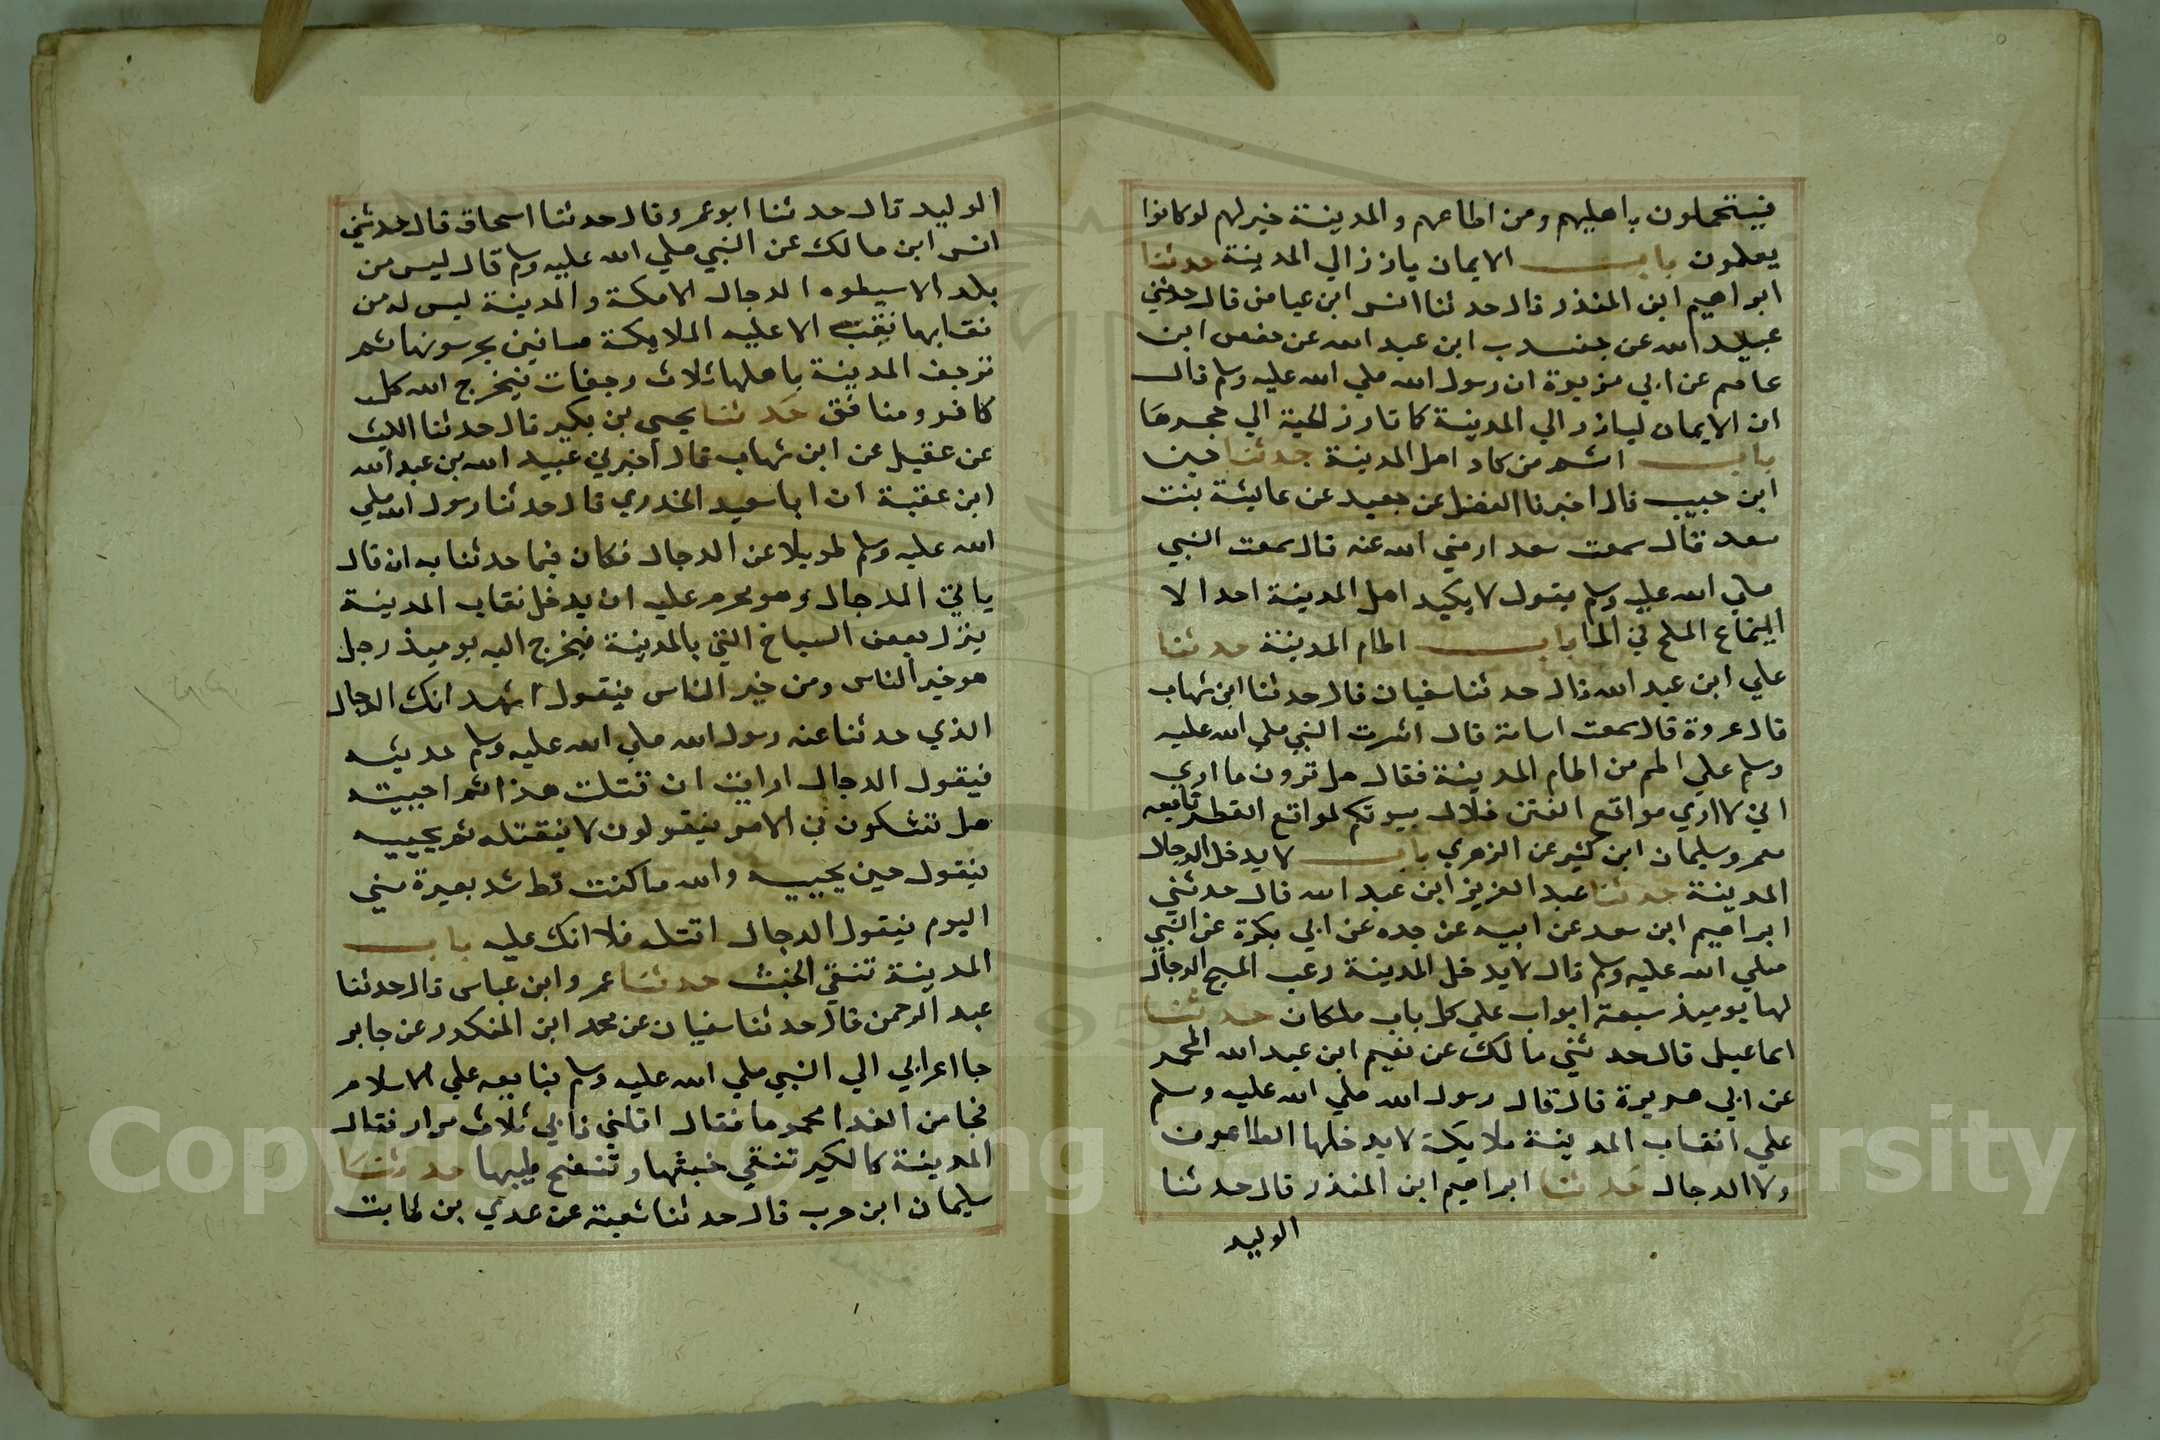 فيتحملون باهليهم ومن اطاعهم والمدينة خير لهم لو كانوا
يعلمون باب الايمان يارز الي المدينة حدثنا
ابراهيم ابن المنذر قال حدثنا انس ابن عياض قال حدثني
عبيد الله عن ابن عبد الله عن حفص ابن
عاصم عن ابي هريرة ان رسول الله صلي الله عليه وسلم قال
ان الايمان ليارز الي المدينة كما تارز الحية الي حجرها
باب اثم من كاد اهل المدينة حدثنا حسن
ابن حبيب قال اخبرنا الفضل عن جعيد عن عايشة بنت
سعد قال سمعت سعد ارضي الله عنه قال سمعت النبي
صلي الله عليه وسلم يقول لا يكيد اهل المدينة احد الا
الينماع الملح في الما باب اطام المدينة حدثنا
علي ابن عبد الله قال حدثنا سفيان قال حدثنا ابن شهاب
قال عروة قال سمعت اسامة قال اشرت النبي صلي الله عليه
وسلم علي اطم من اطام المدينة فقال هل ترون ما اري
اني لا اري مواقع الفتن خلال بيوتكم لمواقع القطر تابعه
معمر وسليمان ابن كثير عن الزهري باب لا يدخل الدجال
المدينة حدثنا عبد العزيز ابن عبد الله قال حدثني
ابراهيم ابن سعد عن ابيه عن جده عن ابي بكرة عن النبي
صلي الله عليه وسلم قال لا يدخل المدينة رعب المسيح الدجال
لها يوميذ سبعة ابواب علي كل باب ملكان حدثنا
اسماعيل قال حدثني مالك عن نعيم ابن عبد الله المجمر
عن ابي هريرة قال قال رسول الله صلي الله عليه وسلم
علي انقاب المدينة ملايكة لا يدخلها الطاعون
ولا الدجال حدثنا ابراهيم ابن المنذر قال حدثنا
الوليد
الوليد قال حدثنا ابو عمرو قال حدثنا اسحاق قال حدثني
انس ابن مالك عن النبي صلي الله عليه وسلم قال ليس من
بلد الا سيطوه الدجال الا مكة والمدينة ليس له من
نقابها نقب الا عليه الملايكة صافين يحرسونها ثم
ترجف المدينة باهلها ثلاث رجفات فيخرج الله كل
كافر ومنافق حدثنا يحيى بن بكير قال حدثنا الليث
عن عقيل عن ابن شهاب قال اخبرني عبيد الله بن عبد الله
ابن عقبة ان ابا سعيد الخدري قال حدثنا رسول الله صلي
الله عليه وسلم طويلا عن الدجال فكان فيما حدثنا به ان قال
ياتي الدجال وهو محرم عليه ان يدخل نقاب المدينة
ينزل بعض السباخ التي بالمدينة فيخرج اليه يوميذ رجل
هو خير الناس ومن خير الناس فيقول اشهد انك الدجال
الذي حدثنا عنه رسول الله صلي الله عليه وسلم حديثه
فيقول الدجال ارايت ان قتلت هذا ثم احييته
هل تشكون في الامر فيقولون لا فيقتله ثم يحييه
فيقول حين يحييه والله ما كنت قط اشد بصيرة مني
اليوم فيقول الدجال اقتله فلا انك عليه باب
المدينة تنقي الخبث حدثنا عمرو ابن عباس قال حدثنا
عبد الرحمن قال حدثنا سفيان عن محمد ابن المنكدر عن جابر
جا اعرابي الي النبي صلي الله عليه وسلم فبايعه علي الاسلام
فجا من الغد امحموما فقال اقلني فابي ثلاث مرار فقال
المدينة كالكير تنقي خبثها وتنصح طيبها حدثنا
سليمان ابن حرب قال حدثنا شعبة عن عدي بن ثابت
Copyright © King Saud University